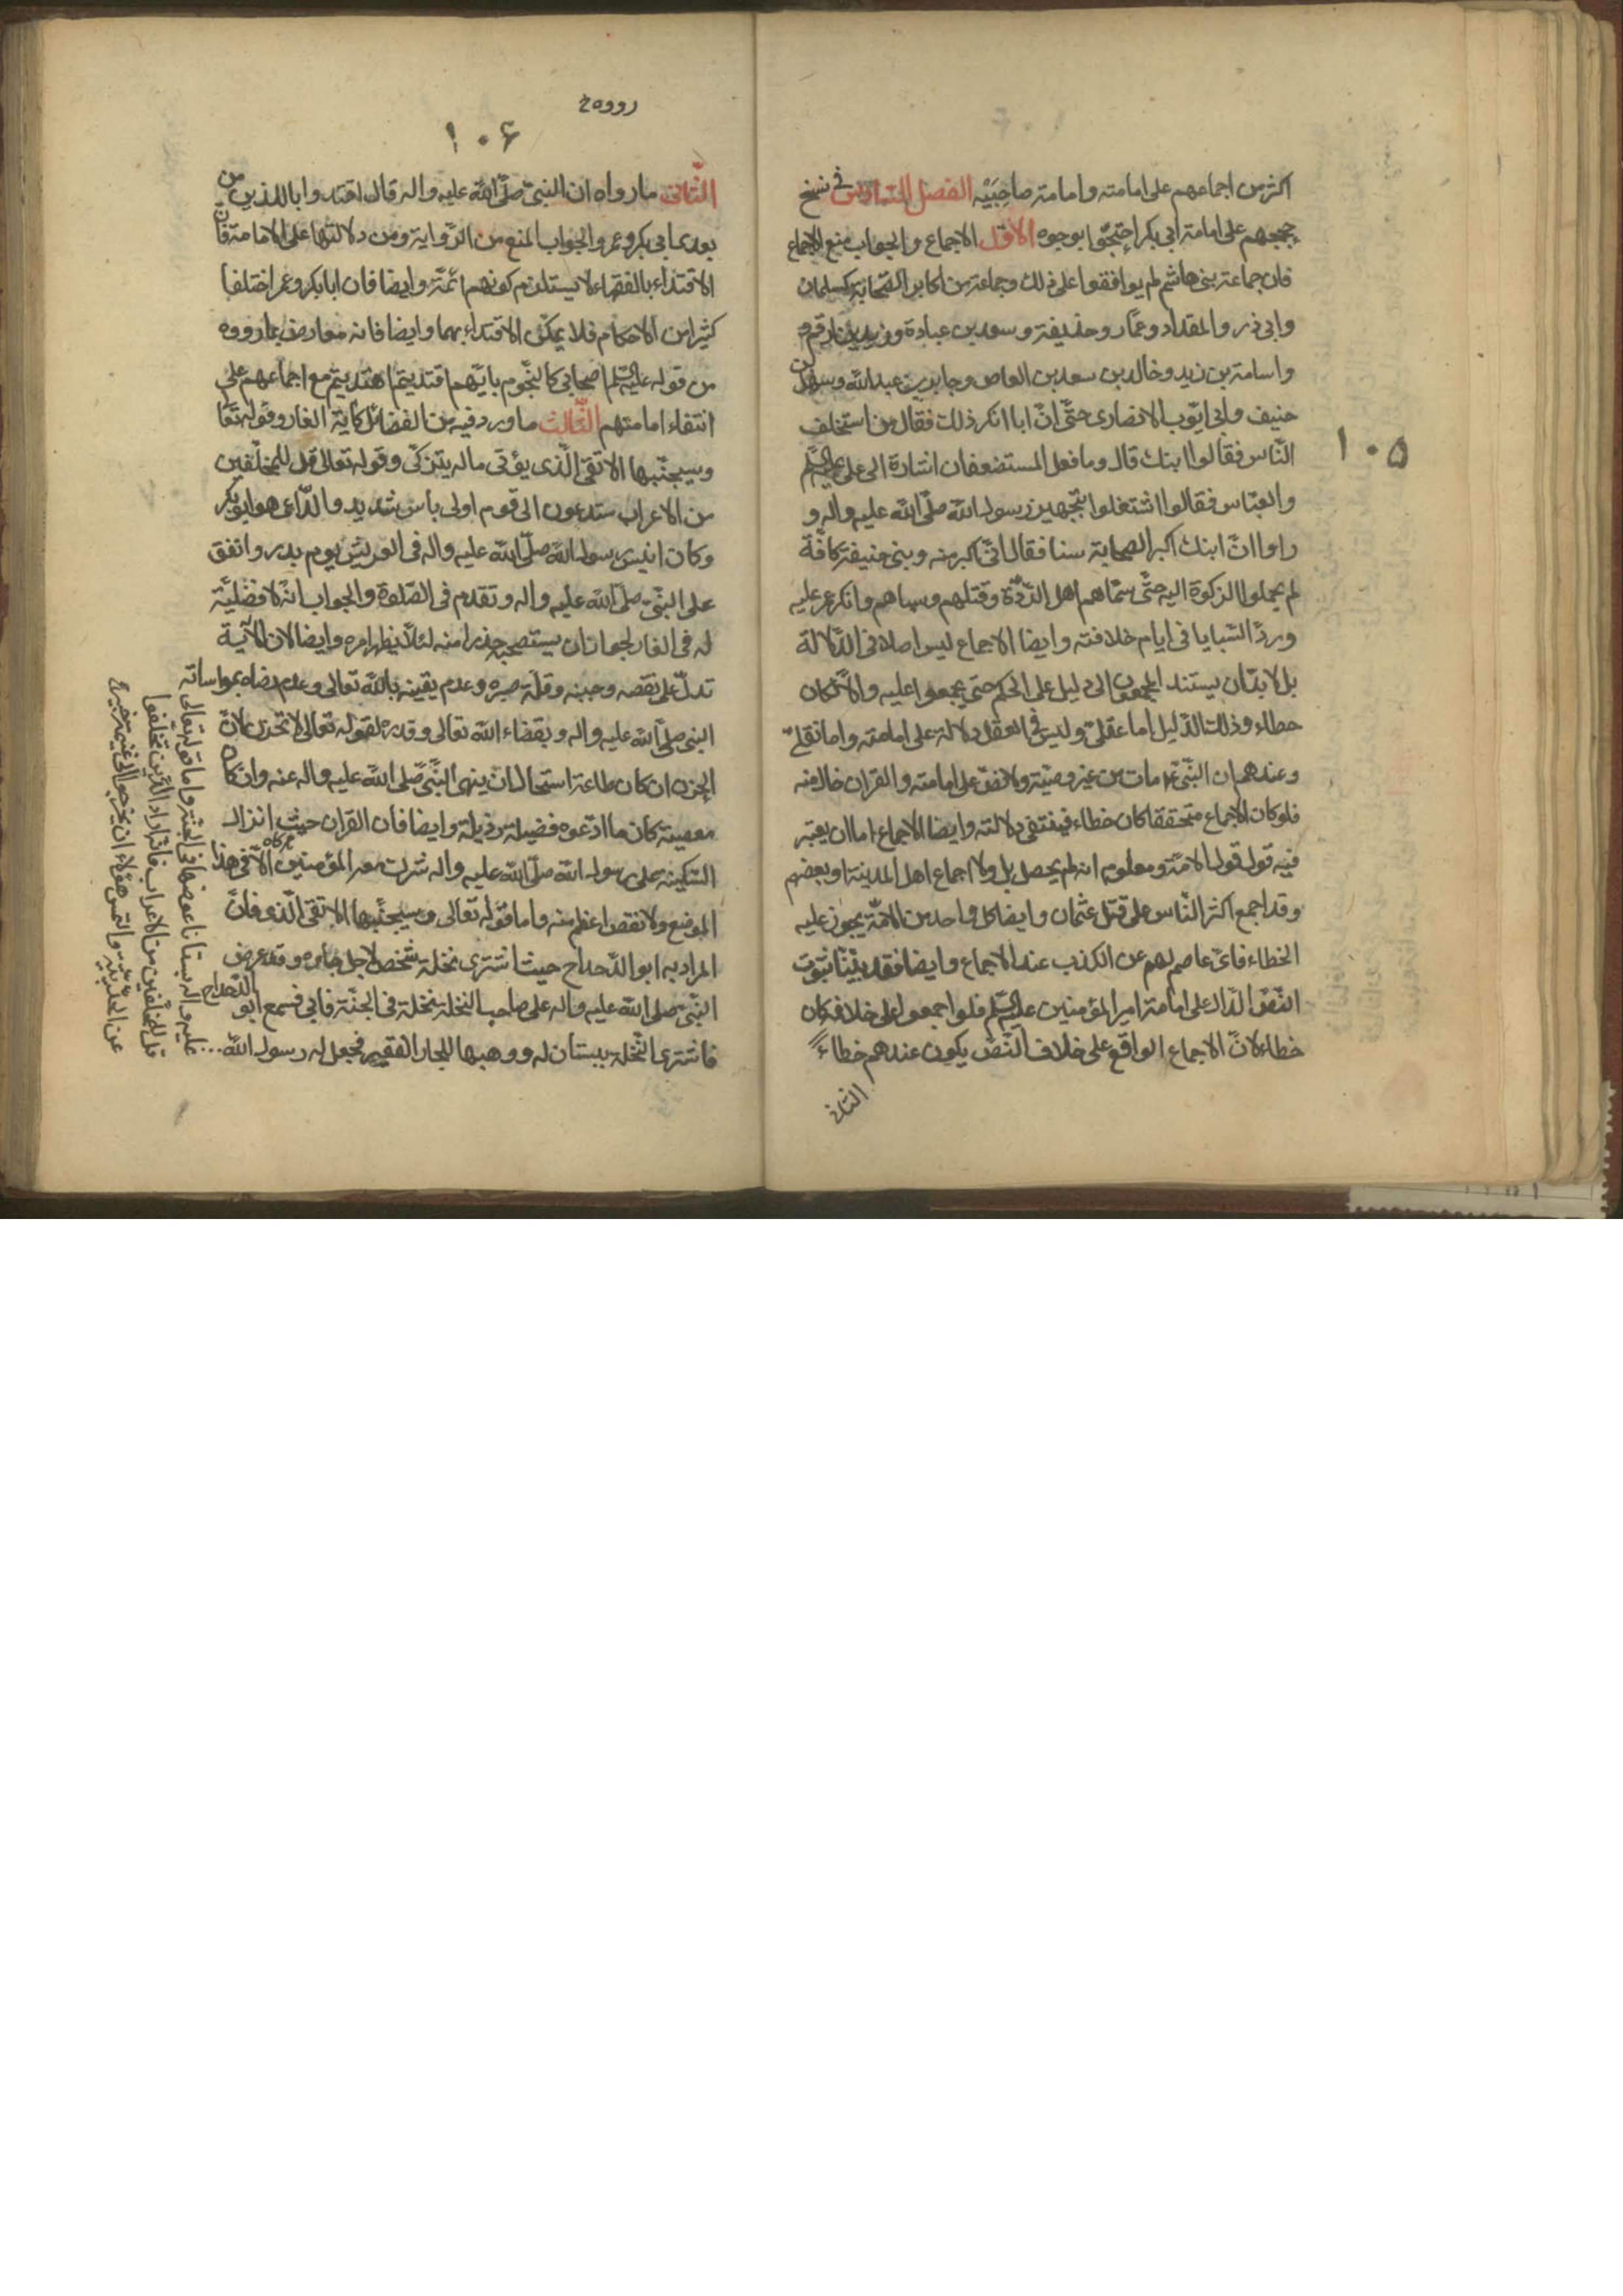 اكثر من اجماعهم على امامته وامامة صاحِبَيْه الفصل السادس في نسخ
حججهم على امامة ابي بكر احتجّوا بوجوه الاوّل الاجماع والجواب منع الاجماع
فان جماعة بني هاشم لم يوافقوا على ذلك وجماعة من اكابر الصّحابة كسلمان
وابي ذر والمقداد وعمّار وحذيفة وسعد بن عبادة وزيد بن ارقم و
واسامة بن زيد وخالد بن سعد بن العاص وجابر بن عبد الله وسهل بن
حنيف وابي ايّوب الانصارى حتّى انّ ابا انكر ذلك فقال من استخلف
النّاس فقالوا ابنك قال وما فعل المستضعفان اشارة الى على عليه السّلم
والعبّاس فقالوا اشتغلوا بتجهيز رسول الله صلّى الله عليه واله و
راوا انّ ابنك اكبر الصحابة سنا فقال انّي اكبر منه وبنى حنيفة كافّة
لم يحملوا الزكوة اليه حتّى سمّاهم اهل الرّدّة وقتلهم وسباهم وانكر عمر عليه
وردّ السّبايا في ايام خلافته وايضا الاجماع ليس اصلا في الدّلالة
بل لا بدّ ان يستند المجمعون الى دليل على الحكم حتى يجمعوا عليه والّا لكان
خطاء وذلك الدّليل اما عقلىّ وليس فى العقل دلالة على امامته واما نقلىّ
وعندهم ان النّبىّ ع مات من غير وصيّة ولا نصّ على امامته والقران خال منه
فلو كان الاجماع متحققا كان خطاء فينتفى دلالته وايضا الاجماع اما ان يعتبر
فيه قول قول الامّة ومعلوم انه لم يحصل بل ولا اجماع اهل المدينة او بعضهم
وقد اجمع اكثر النّاس على قتل عثمان وايضا كل واحد من الامّة يجوز عليه
الخطاء فاىّ عاصم لهم عن الكذب عند الاجماع وايضا فقد بيّنّا ثبوت
النّصّ الدّال على امامة امير المؤمنين عليه السّلم فلو اجمعوا على خلافه كان
خطاء لانّ الاجماع الواقع على خلاف النّصّ يكون عندهم خطاء
الثانى
١٠٥
رووه خ
١٠۶
الثّانى ما رواه ان النبىّ صلّى الله عليه واله قال اقتدوا باللذين من
بعدى ابى بكر وعمر والجواب المنع من الرّواية ومن دلالتها على الامامة فان
الاقتداء بالفقهاء لا يستلزم كونهم ائمّة وايضا فان ابا بكر وعمر اختلفا
كثيرا من الاحكام فلا يمكن الاقتداء بهما وايضا فانه معارض بما رووه
من قوله عليه السّلم اصحابى كالنّجوم بايّهم اقتديتم اهتديتم مع اجماعهم على
انتفاء امامتهم الثّالث ما ورد فيه من الفضائل كآية الغار وقوله تعا
وسيجنّبها الاتقى الّذى يؤتى ماله يتزكّى وقوله تعالى قل للمخلّفين
من الاعراب ستدعون الى قوم اولى باس شديد والدّاعى هو ابو بكر
وكان انيس رسول الله صلّى الله عليه واله فى العريش يوم بدر وانفق
على النّبىّ صلّى الله عليه واله وتقدم فى الصّلوة والجواب انّه لا فضليّة
له فى الغار لجواز ان يستصحبه حذرا منه لئلّا يظهر امره وايضا لان الاية
تدلّ على نقصه وجبنه وقلّة صبره وعدم يقينه بالله تعالى وعدم رضاه بمواساته
النبى صلّى الله عليه واله وبقضاء الله تعالى وقدره لقوله تعالى لا تحزن لانّ
الحزن ان كان طاعة استحال ان ينهى النّبىّ صلّى الله عليه واله عنه وان كان
معصية كان ما ادّعوه فضيلة من رذيلة وايضا فان القران حيث انزل
السّكينة على رسول الله صلّى الله عليه واله شركت معه المؤمنين الّا فى هذا
الموضع ولا نقص اعظم منه واما قوله تعالى وسيجنّبها الاتقى الّذى فانّ
المراد به ابو الدّحداح حيث اشترى نخلة شخص لاجل جاره وقد عرض
النّبى صلى الله عليه واله على صاحب النخلة نخلة فى الجنّة فابى فسمع ابو الدّحداح
فاشترى النّخلة ببستان له ووهبها للجار الفقير فجعل له رسول الله
عليه واله بستانا عوضها فى الجنّة واما قوله تعالى
قل للمخلّفين من الاعراب فانّه اراد الّذين تخلّفوا
عن الحديبيّة والتمس هؤلاء ان يخرجوا الى غنيمة خيبر